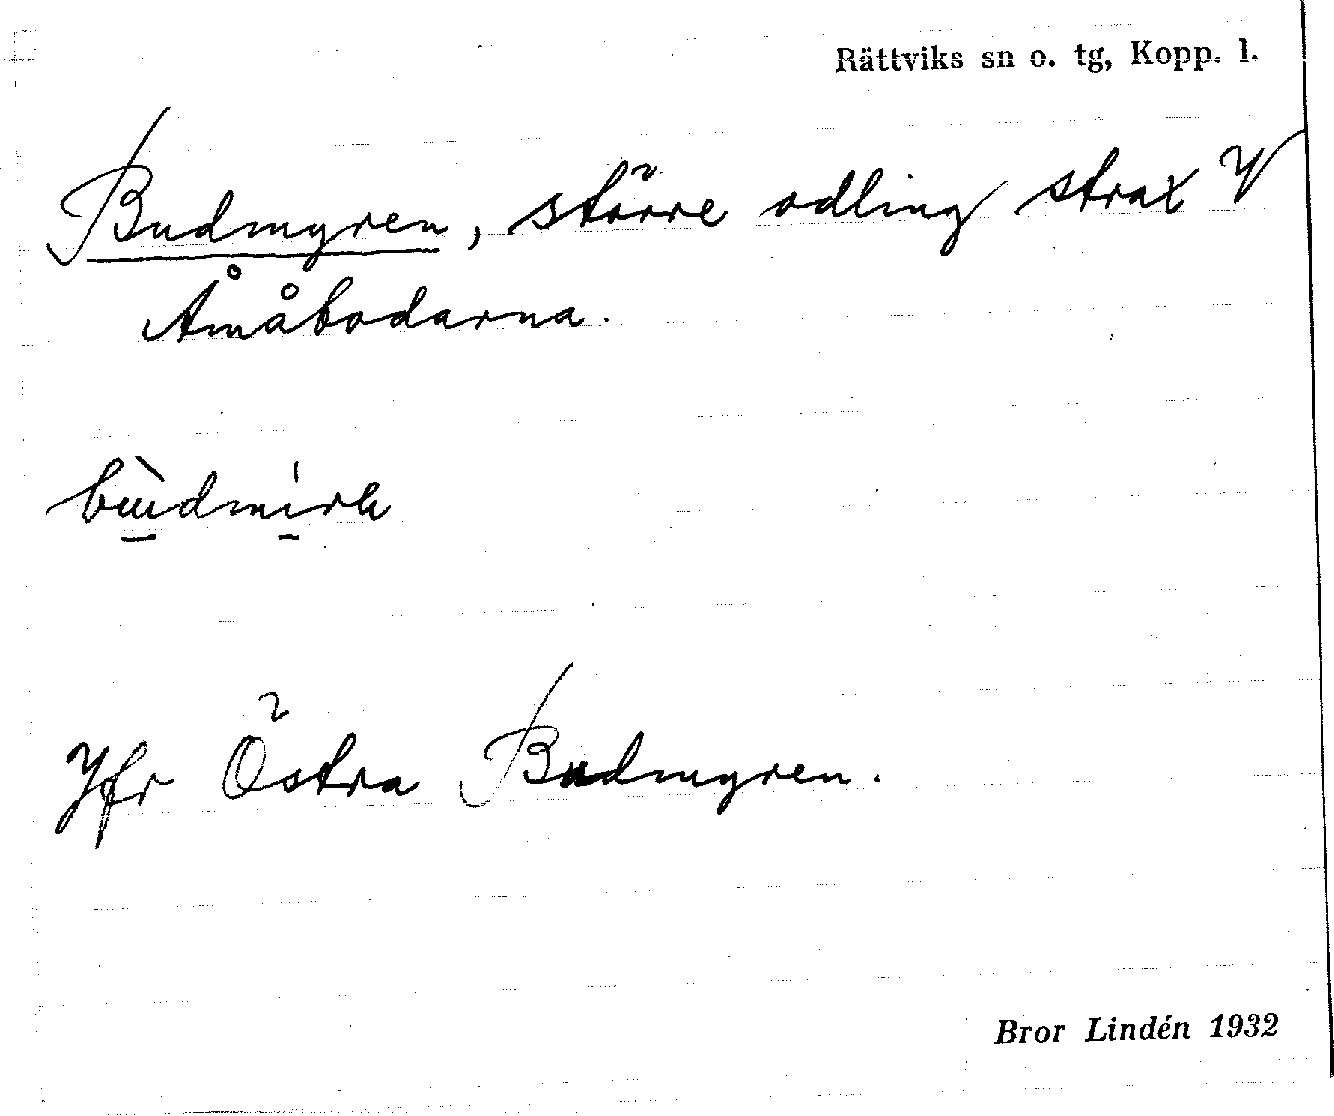 Rättviks sn o. tg, Kopp. l.
Budmyren, större odling strax V
Åmåbodarna.
Jfr Östra Budmyren.
Bror Lindén 1932